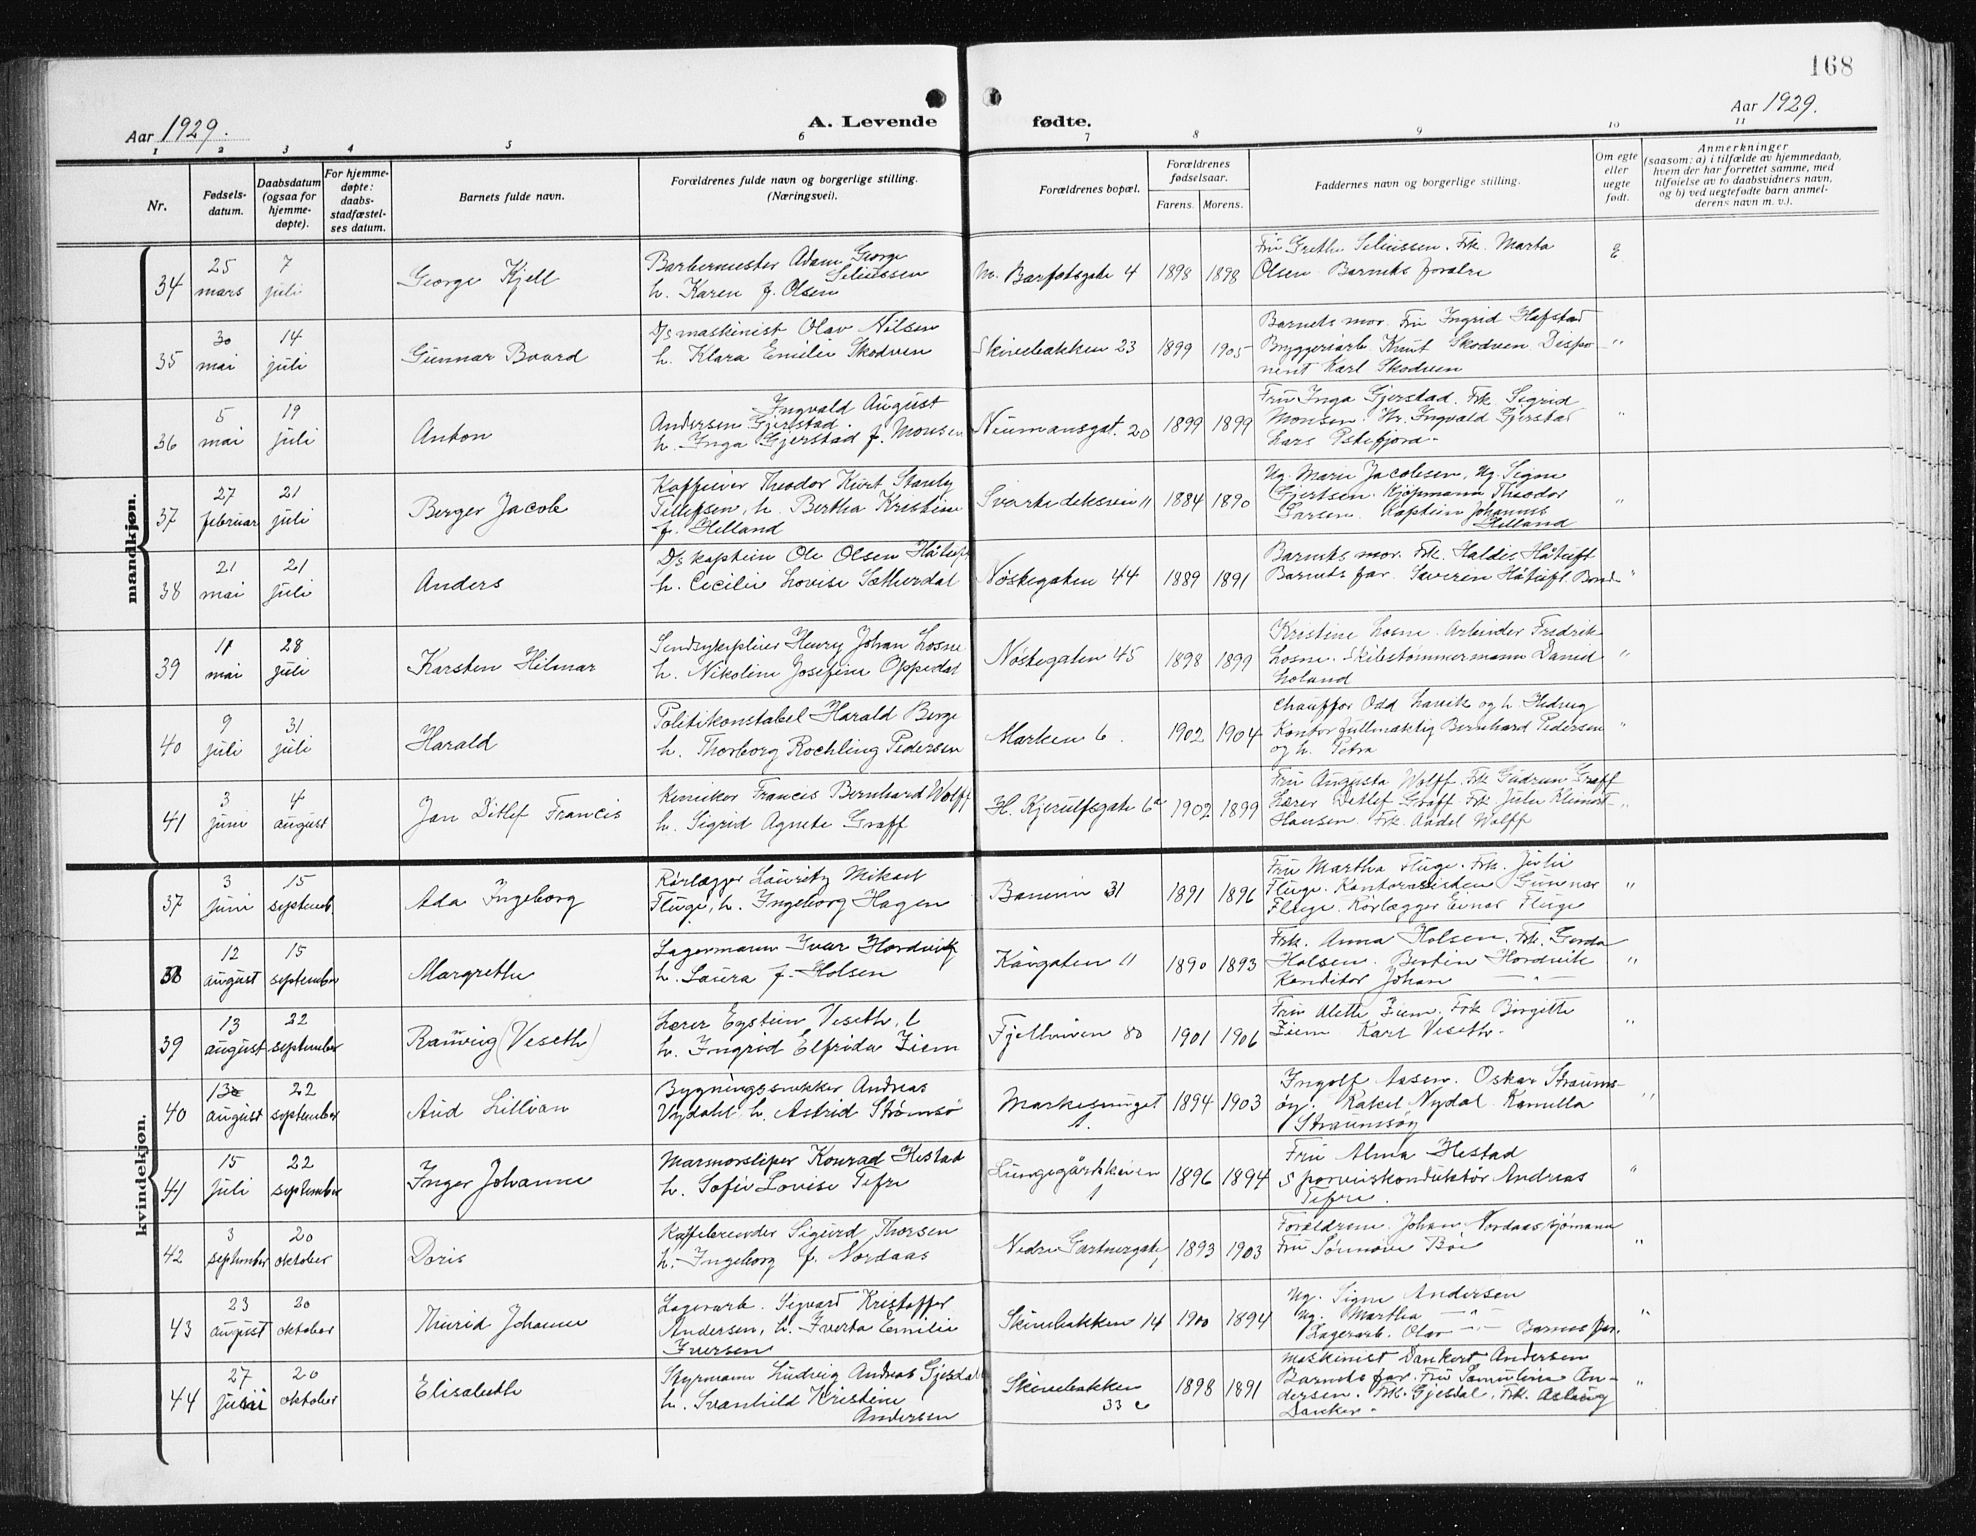 168
Aar 1929.
A. Levende
fødte.
Aar 1929.
1 2 3 4 5 6 7 8 9 10 11
Nr.
Fødsels-
datum.
Daabsdatum
(ogsaa for
hjemme-
døpte).
For hjemme-
døpte:
daabs-
stadfæstel-
ses datum.
Barnets fulde navn.
Forældrenes fulde navn og borgerlige stilling.
(Næringsvei).
Forældrenes bopæl.
Forældrenes
fødselsaar.
Farens. Morens.
Faddernes navn og borgerlige stilling.
Om egte
eller
uegte
født.
Anmerkninger
(saasom: a) i tilfælde av hjemmedaab,
hvem der har forrettet samme, med
tilføielse av to daabsvidners navn,
og b) ved uegtefødte barn anmel-
derens navn m. v.).
mandkjøn.
34
25
mars
7
juli
George Kjell
Barbermester Adam George
h. Karen f. Olsen
4 1898 1898
Olsen. Barnets forældre
E
35
30
mai
14
juli
Gunnar Baard
D/s maskinist Olav Nilsen
h. Klara Emilie Skodven
Skivebakken 23 1899 1905
Barnets mor. Fru Ingrid Hafstad
Byggeriarb Knut Skodven. Dispo-
nent Karl Skodven
"
36
5
mai
19
juli
Anton
Ingvald August
Andersen Gjerstad.
h. Inga Gjerstad f. Monsen
Neumansgat. 20 1899 1899
Fru Inga Gjerstad. Frk Sigrid
Monsen. Hr. Ingvald Gjerstad
Lars
"
37
27
februar
21
juli
Berger Jacob
Theodor Kurt Stanly
Tillefsen, h. Bertha Kristine
f. Helland
11 1884 1890
Ug. Marie Jacobsen, Ug. Signe
Gjertsen. Kjøpmann Theodor
Larsen. Kaptein Johannes
Helland
"
38
21
mai
21
juli
Anders
D/s kaptein Ole Olsen
h. Cecilie Lovise Sætherdal
Nøstegaten 44 1889 1891
Barnets mor. Frk. Haldis Håtuft
Barnets far. Severin Håtuft. Bond
"
39
11
mai
28
juli
Karsten Hilmar
Henry Johan Losne
h. Nikoline Josefine Oppedal
Nøstegaten 45 1898 1899
Kristine Losne. Arbeider Fredrik
Losne. Skibstømmermann Daniel
Loland
"
40
9
juli
31
juli
Harald
Politikonstabel Harald Berge
h. Thorborg Rochling Pedersen
Marken 6. 1902 1904
Chauffør Odd Lavik og h. Hedvig
Kontorfullmæktig Bernhard Pedersen
og h. Petra
"
41
3
juni
4
august
Jan Ditlef Francis
Kemiker Francis Bernhard Wolff
h. Sigrid Agnete Graff
H. Kjerulfsgate 6a 1902 1899
Fru Augusta Wolff. Frk Gudrun Graff
Lærer Detlef Graff. Frk Julie
Hansen Frk. Aadel Wolff
"
kvindekjøn.
37
3
juni
15
septemb.
Ada Ingeborg
Rørlægger Lauritz Mikael
Fluge, h. Ingeborg Hagen
31 1891 1896
Fru Martha Fluge. Frk.
Fluge. Kontorassistent Gunnar
Fluge. Rørlægger Einar Fluge
"
38
12
august
15
september
Margrethe
Lagermann Ivar Hordvik
h. Laura f. Holsen
11 1890 1893
Frk. Anna Holsen. Frk. Gerda
Holsen. Bertin Hordvik
Konditor Johan — " —
"
39
13
august
22
september
Rannveig (Veseth)
Lærer Eystein Veseth,
h. Ingrid Elfrida Ziem
Fjellveien 80 1901 1906
Fru Alette Ziem. Frk Borgitte
Ziem Karl Veseth.
"
40
13
august
22
september
Aud Lillian
Andreas
h. Astrid Strømsø
1. 1894 1903
Ingolf Aasen. Oskar Straums-
øy. Rakel Nydal Kamilla
Straumsøy
"
41
15
juli
22
september
Inger Johanne
Marmorsliper Konrad Hestad
h. Sofie Lovise Tefre
1 1896 1894
Fru Alma Hestad
Sporveiskonduktør Andreas
Tefre.
"
42
3
september
20
oktober
Doris
Sigurd Thorsen
h. Ingeborg f. Nordaas
Nedre Gartnergate 1893 1903
Forældrene. Johan Nordaas sjømann
Fru Bøe
"
43
23
august
20
oktober
Thurid Johanne
Lagerarb. Sigvard Kristoffer
Andersen, h. Iverta Emilie
Iversen
Skivebakken 14 1900 1894
Ug. Signe Andersen
Ug. Martha — " —
Lagerarb. Olav — " — Barnets far.
"
44
27
juni
20
oktober
Elisabeth
Styrmann Ludvig Andreas Gjesdal
h. Svanhild Kristine
Andersen
Skivebakken
33 c 1898 1891
Maskinist Dankert Andersen
Barnets far. Fru Samuline An-
dersen. Frk. Gjesdal. Frk. Aslaug
"